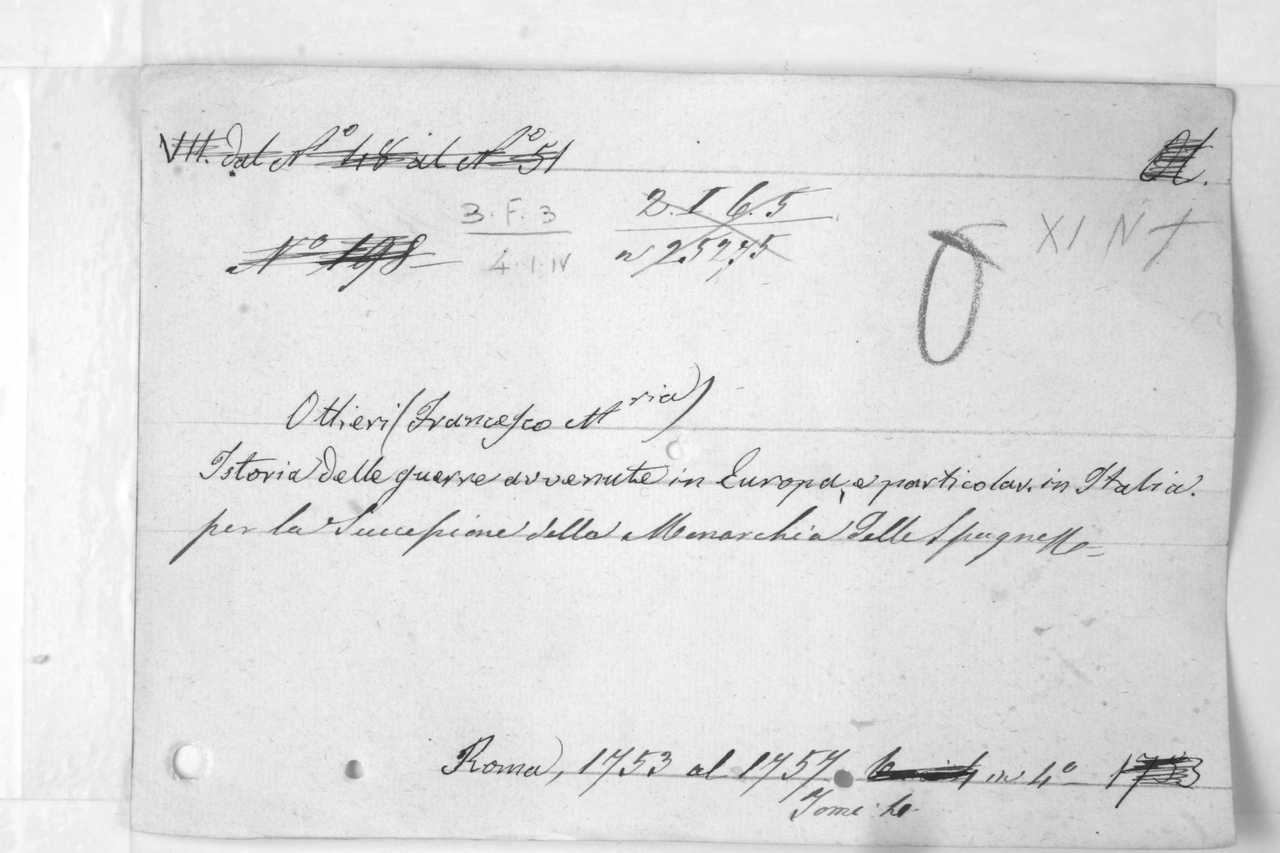 VII. dal Nº 48 al Nº 51
3. F. 3
2. I 6. 5
XI N
Nº 198
4. I. IV
n 25275
O
Ottieri (Francesco Mria)
Istoria delle guerre avvenute in Europa, e particolar. in Italia.
per la Successione della Monarchia delle Spagne
Roma, 1753 al 1757 in 4º 1753
Tomi 4